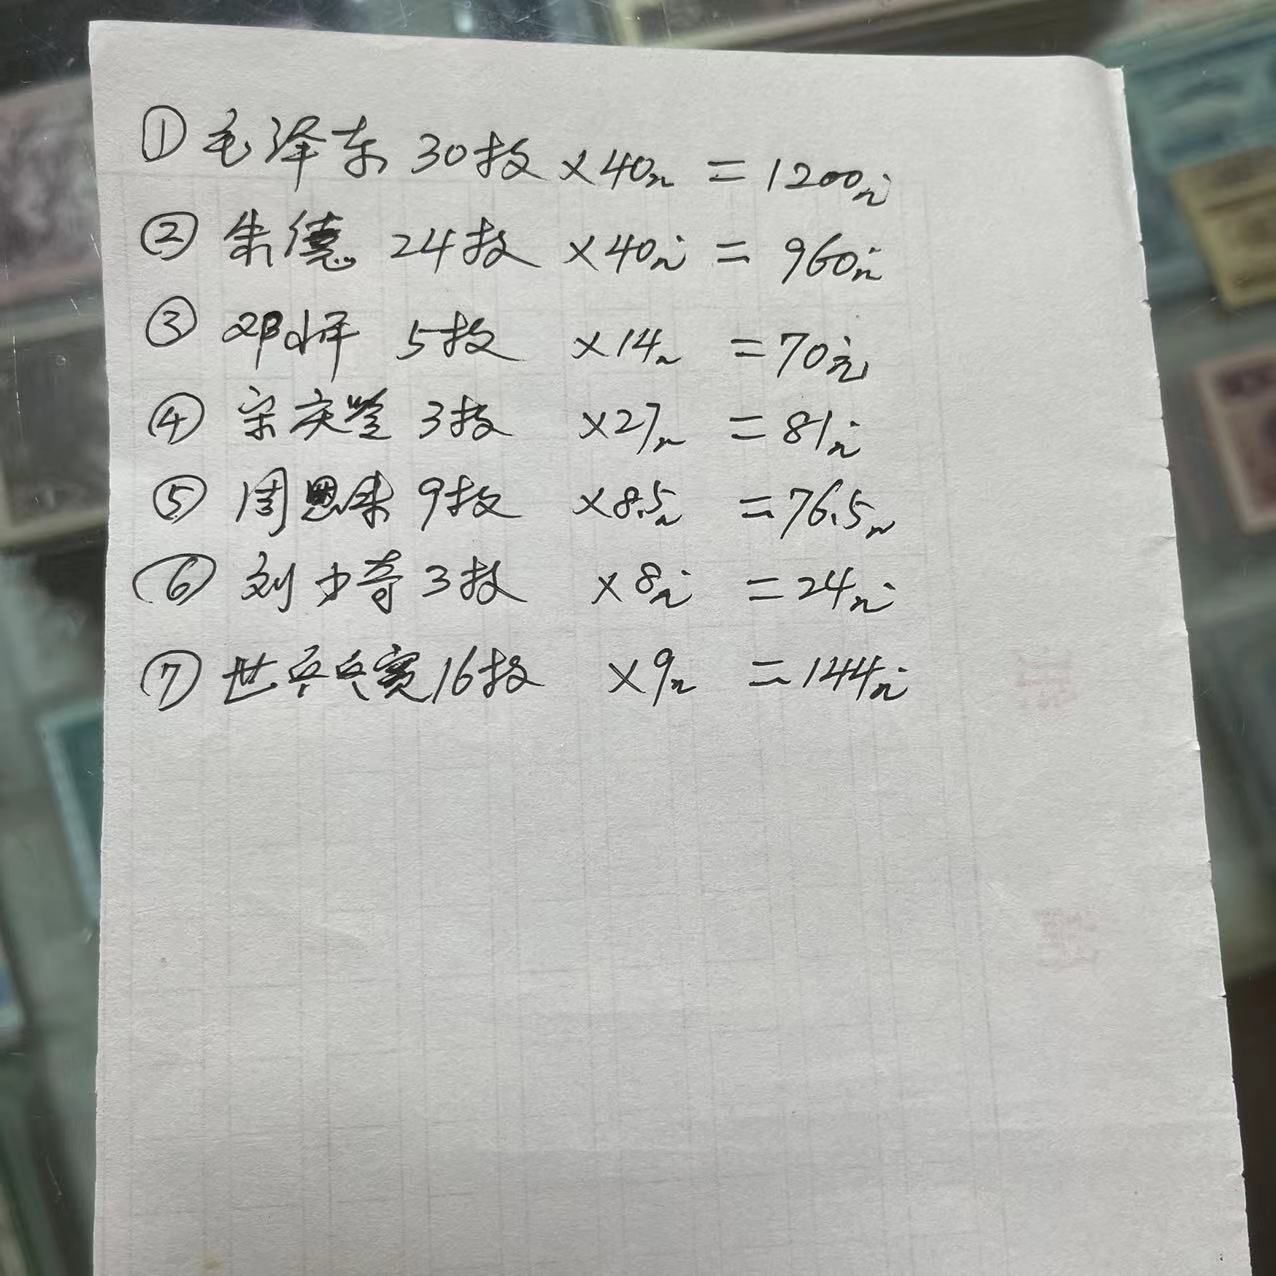 ① 毛泽东 30枚 ×40元 = 1200元
② 朱德 24枚 ×40元 = 960元
③ 邓小平 5枚 ×14元 = 70元
④ 宋庆龄 3枚 ×27元 = 81元
⑤ 周恩来 9枚 ×8.5元 = 76.5元
⑥ 刘少奇 3枚 ×8元 = 24元
⑦ 世乒乓赛 16枚 ×9元 = 144元